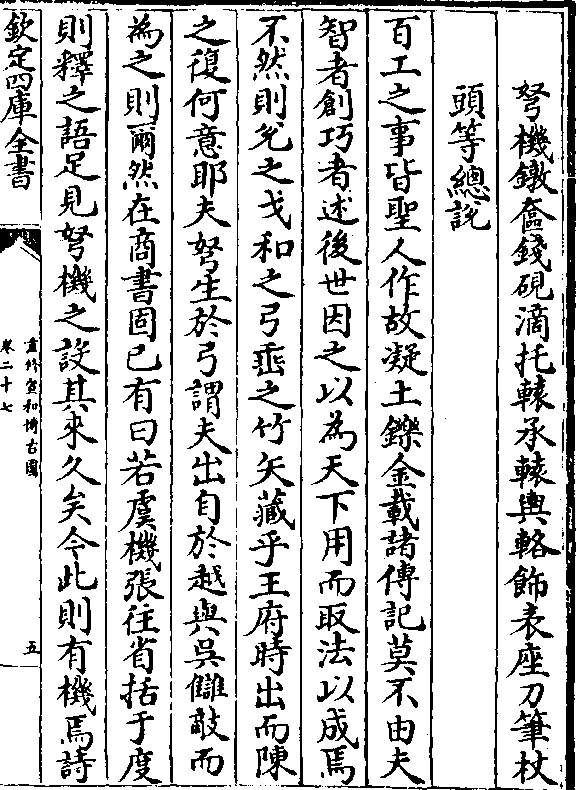 弩機鐓奩錢硯滴托轅承轅輿輅飾表座刀筆杖
頭等總說
百工之事皆聖人作故凝土鑠金載諸傳記莫不由夫
智者創巧者述後世因之以為天下用而取法以成焉
不然則兊之戈和之弓垂之竹矢藏乎王府時出而陳
之復何意耶夫弩生於弓謂夫出自於越與吳讎敵而
為之則爾然在商書固已有曰若虞機張往省括于度
則釋之語足見弩機之設其來久矣今此則有機焉詩
欽定四庫全書
重修宣和博古圖
卷二十七
五